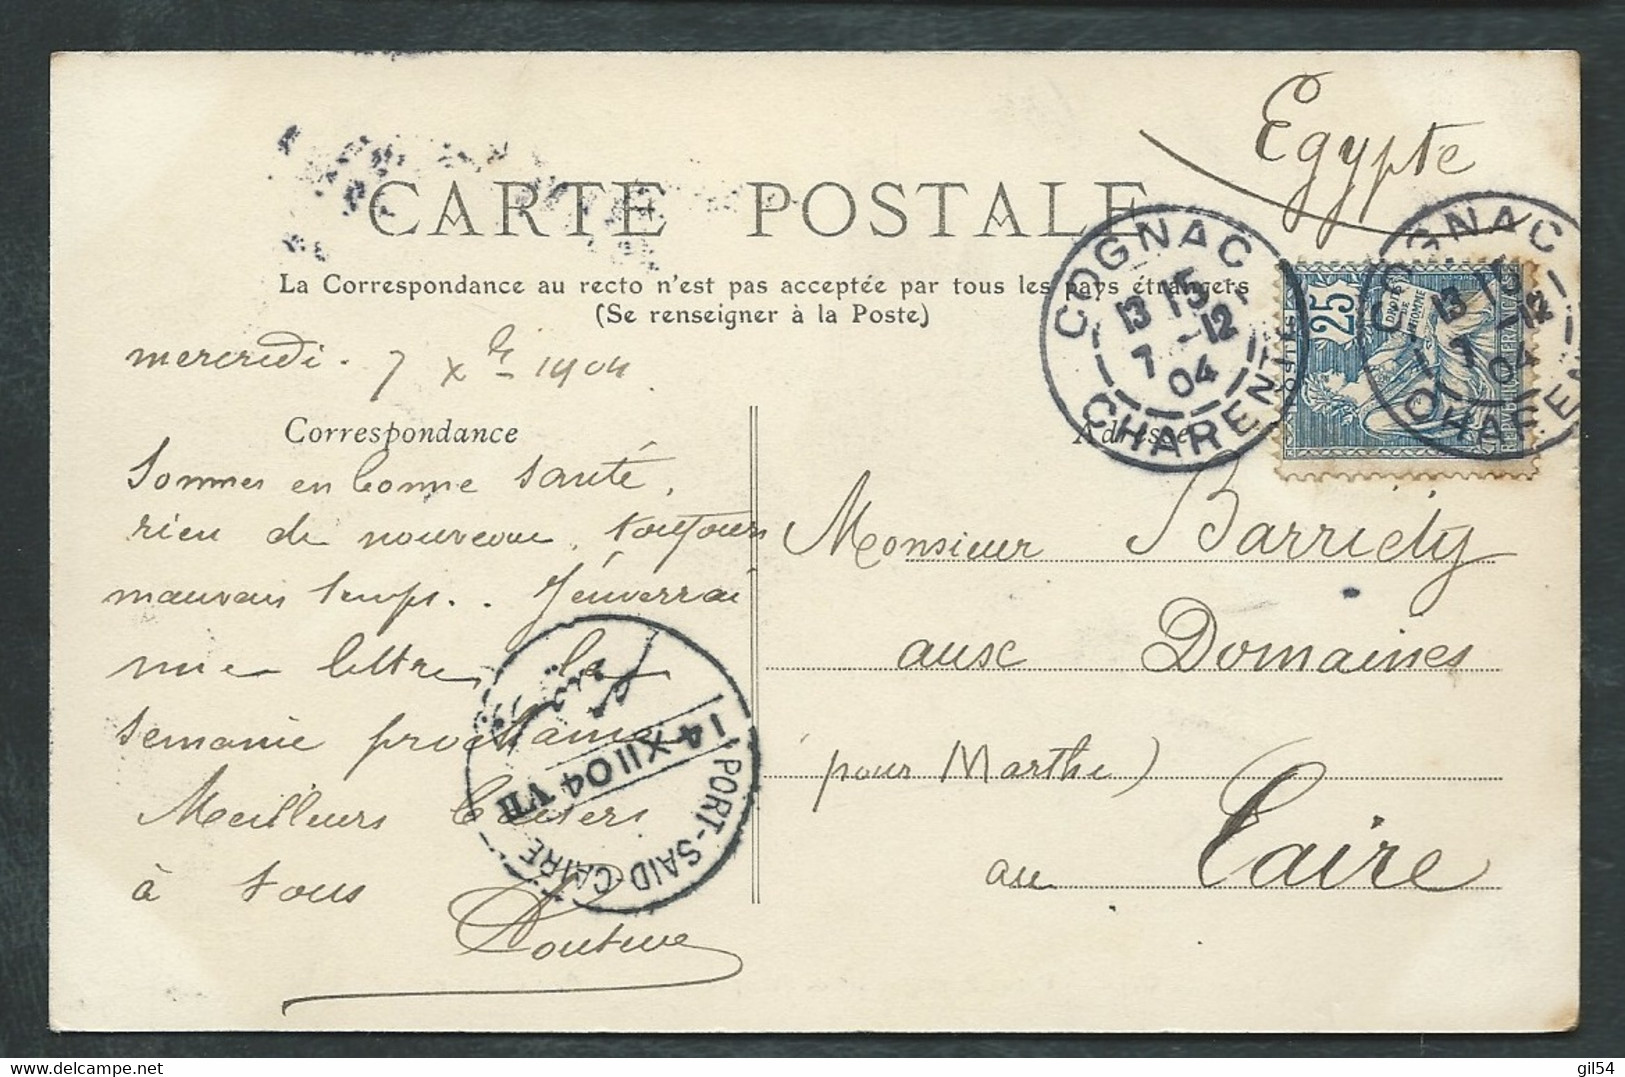 Egypte
CARTE POSTALE
La Correspondance au recto n'est pas acceptée par tous les pays étrangers
(Se renseigner à la Poste)
COGNAC
13 15
7 -12
04
CHARENTE
COGNAC
13 15
7 -12
04
CHAREN
25
DROITS
DE
L'HOMME
mercredi. 7 Xbre 1904
Correspondance
Sommes en bonne santé,
rien de nouveau, toujours
mauvais temps.. J'enverrai
une lettre la
semaine prochaine
Meilleurs baisers
à tous
Adresse
Monsieur Barriety
aux Domaines
(pour Marthe)
au Caire
14 XII 04 VII
PORT-SAID-CAIRE
www.delcampe.net
gil54